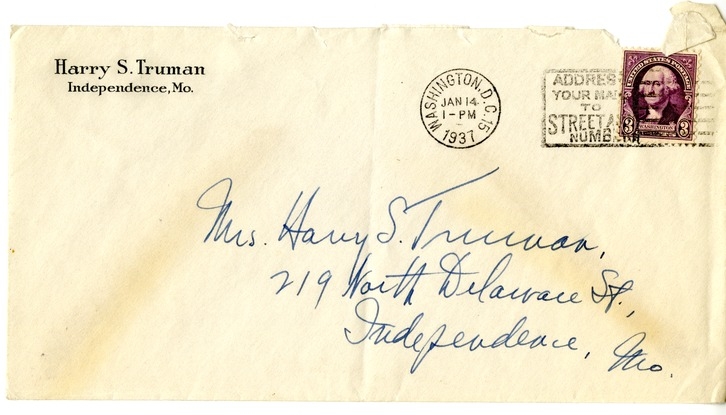 Harry S. Truman
Independence, Mo.
WASHINGTON, D.C. 15
JAN 14
1-PM
1937
ADDRESS
YOUR MAI
TO
STREET A
NUMB
UNITED STATES POSTAGE
3 WASHINGTON 3
Mrs. Harry S. Truman,
219 North Delaware St.,
Independence, Mo.